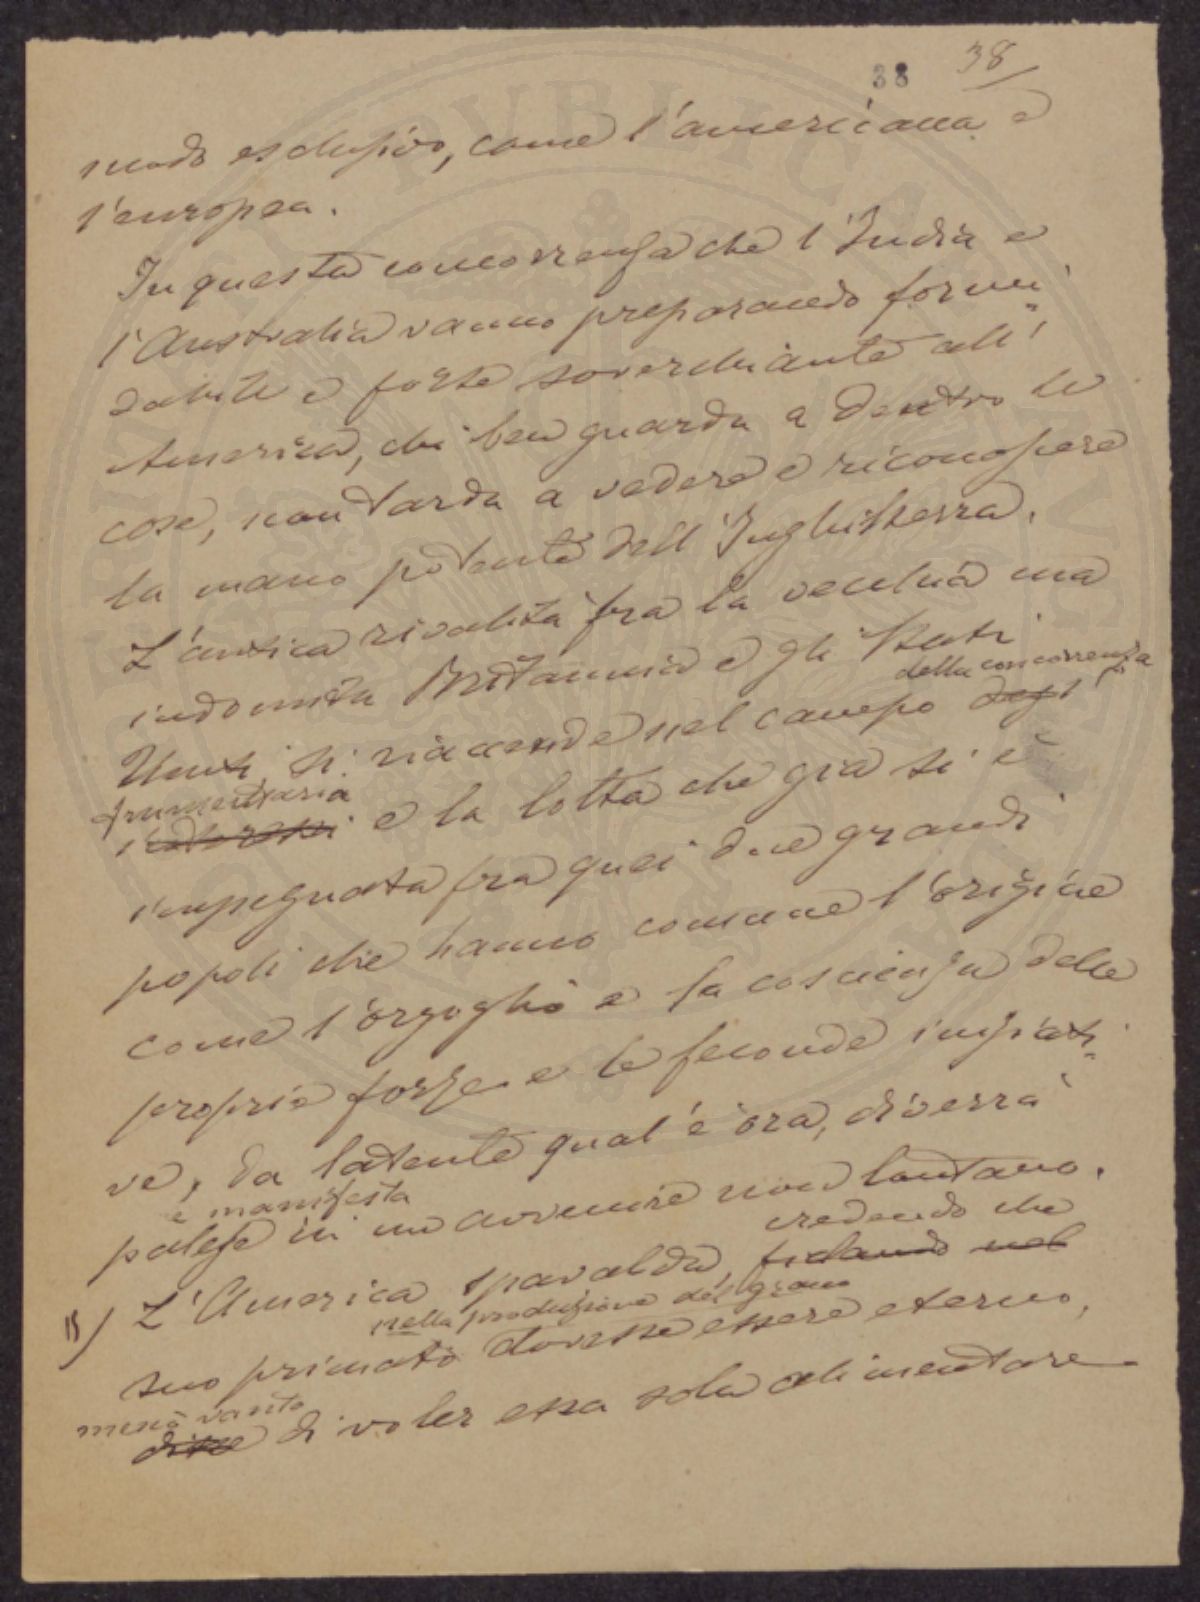 38 38
modo esclusivo, come l'americana e
l'europea.
In questa concorrenza che l'India e
l'Australia vanno preparando formi„
dabile e forse soverchiante all'
America, chi ben guarda a dentro le
cose, non tarda a vedere e riconoscere
la mano potente dell'Inghilterra.
L'antica rivalità fra la vecchia ma
indomita Britannia e gli Stati
della concorrenza
Uniti si riaccende nel campo degl'
frumentaria
interessi e la lotta che già si è
impegnata fra quei due grandi
popoli che hanno comune l'origine
come l'orgoglio e la coscienza delle
proprie forze e le feconde iniziati„
ve, da latente qual'è ora, diverrà
e manifesta
palese in un avvenire non lontano.
credendo che
15) L'America spavalda, fidando nel
nella produzione del grano
suo primato dovesse essere eterno,
menò vanto
disse di voler essa sola alimentare